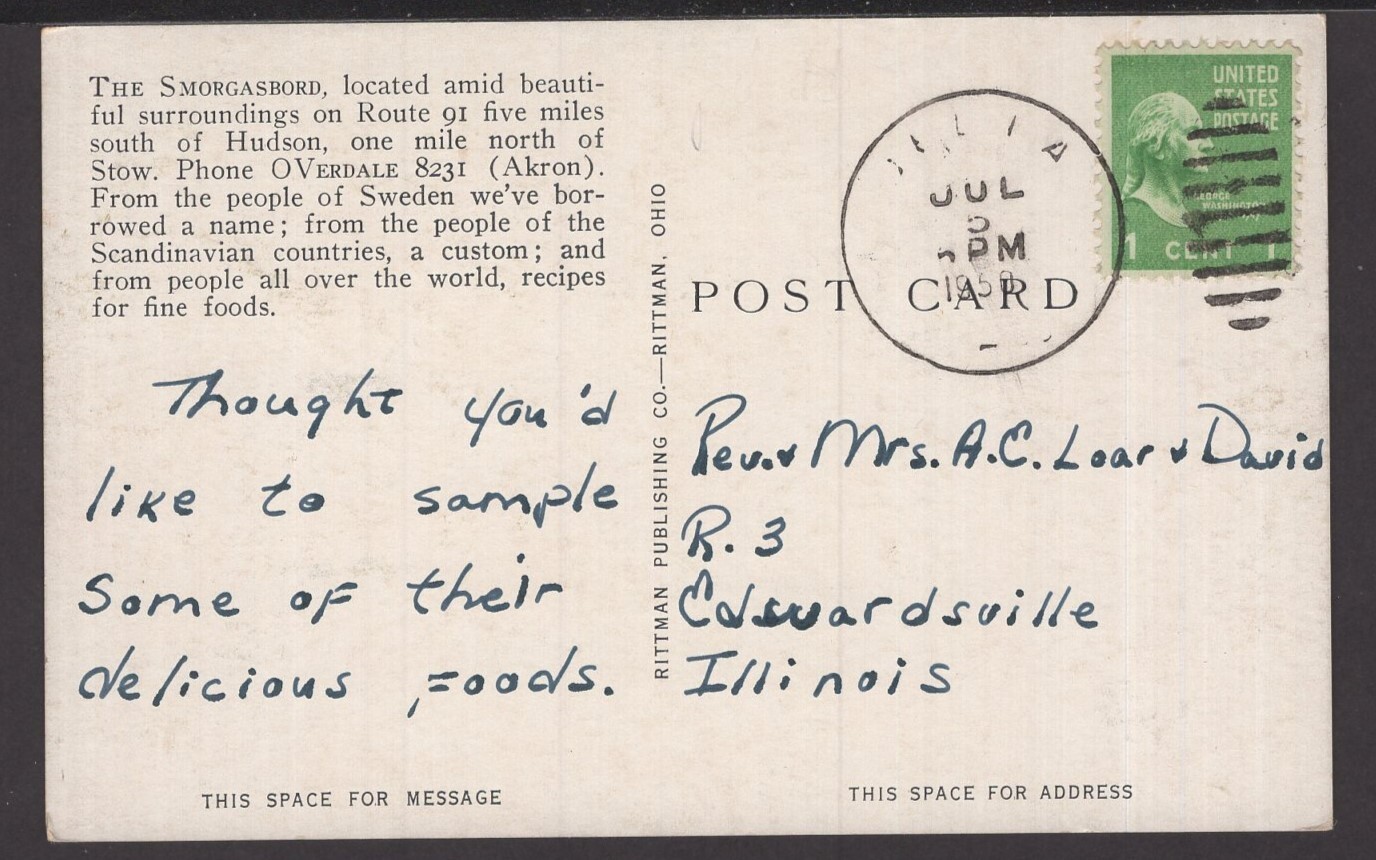 THE SMORGASBORD, located amid beauti-
ful surroundings on Route 91 five miles
south of Hudson, one mile north of
Stow. Phone OVERDALE 8231 (Akron).
From the people of Sweden we've bor-
rowed a name; from the people of the
Scandinavian countries, a custom; and
from people all over the world, recipes
for fine foods.
Thought you'd
like to sample
Some of their
delicious foods.
THIS SPACE FOR MESSAGE
RITTMAN PUBLISHING CO.—RITTMAN, OHIO
UNITED
STATES
POSTAGE
GEORGE
WASHINGTON
1 CENT 1
JUL
5
PM
1950
POST CARD
Rev. & Mrs. A.C. Loar & David
R. 3
Edswardsville
Illinois
THIS SPACE FOR ADDRESS